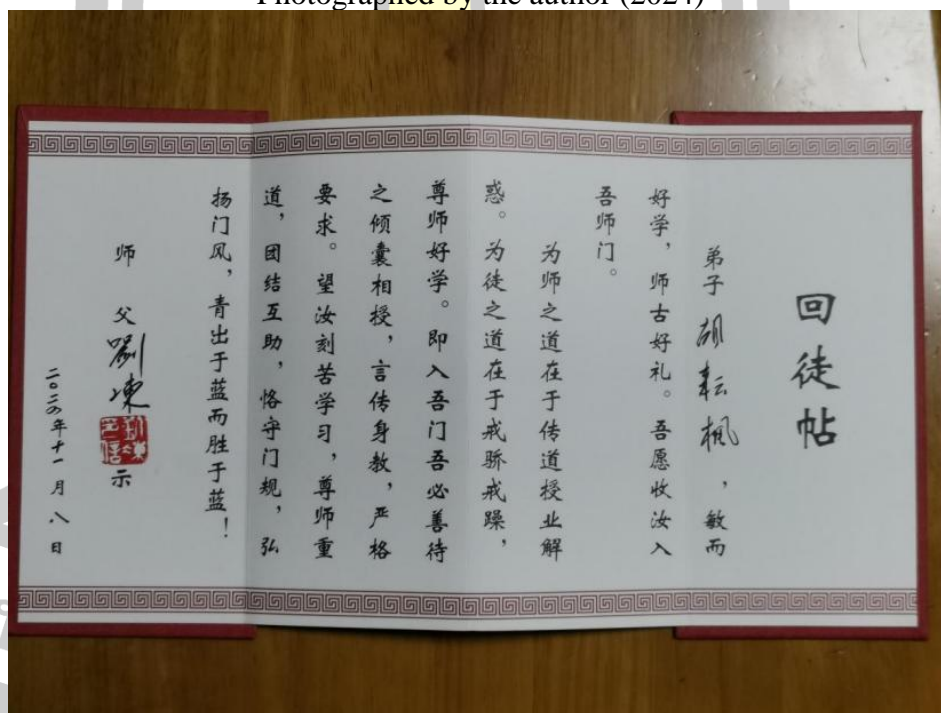 Photographed by the author (2024)
回徒帖
弟子胡耘枫，敏而
好学，师古好礼。吾愿收汝入
吾师门。
为师之道在于传道授业解
惑。为徒之道在于戒骄戒躁，
尊师好学。即入吾门吾必善待
之倾囊相授，言传身教，严格
要求。望汝刻苦学习，尊师重
道，团结互助，恪守门规，弘
扬门风，青出于蓝而胜于蓝！
师父劉埬示
二〇二四年十一月八日